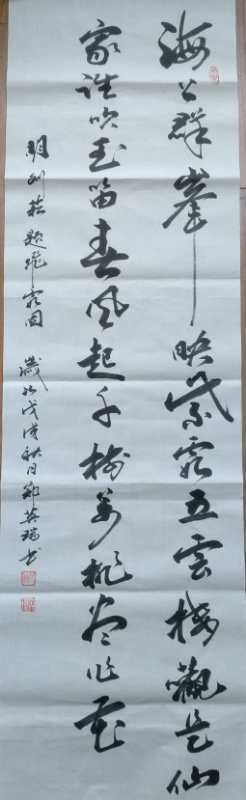 海上群峯映紫霞五雲樓觀是仙
家誰吹玉笛春風起千樹萬桃盡作花
明刘基题图
歲戊戌秋月郑英瑞书